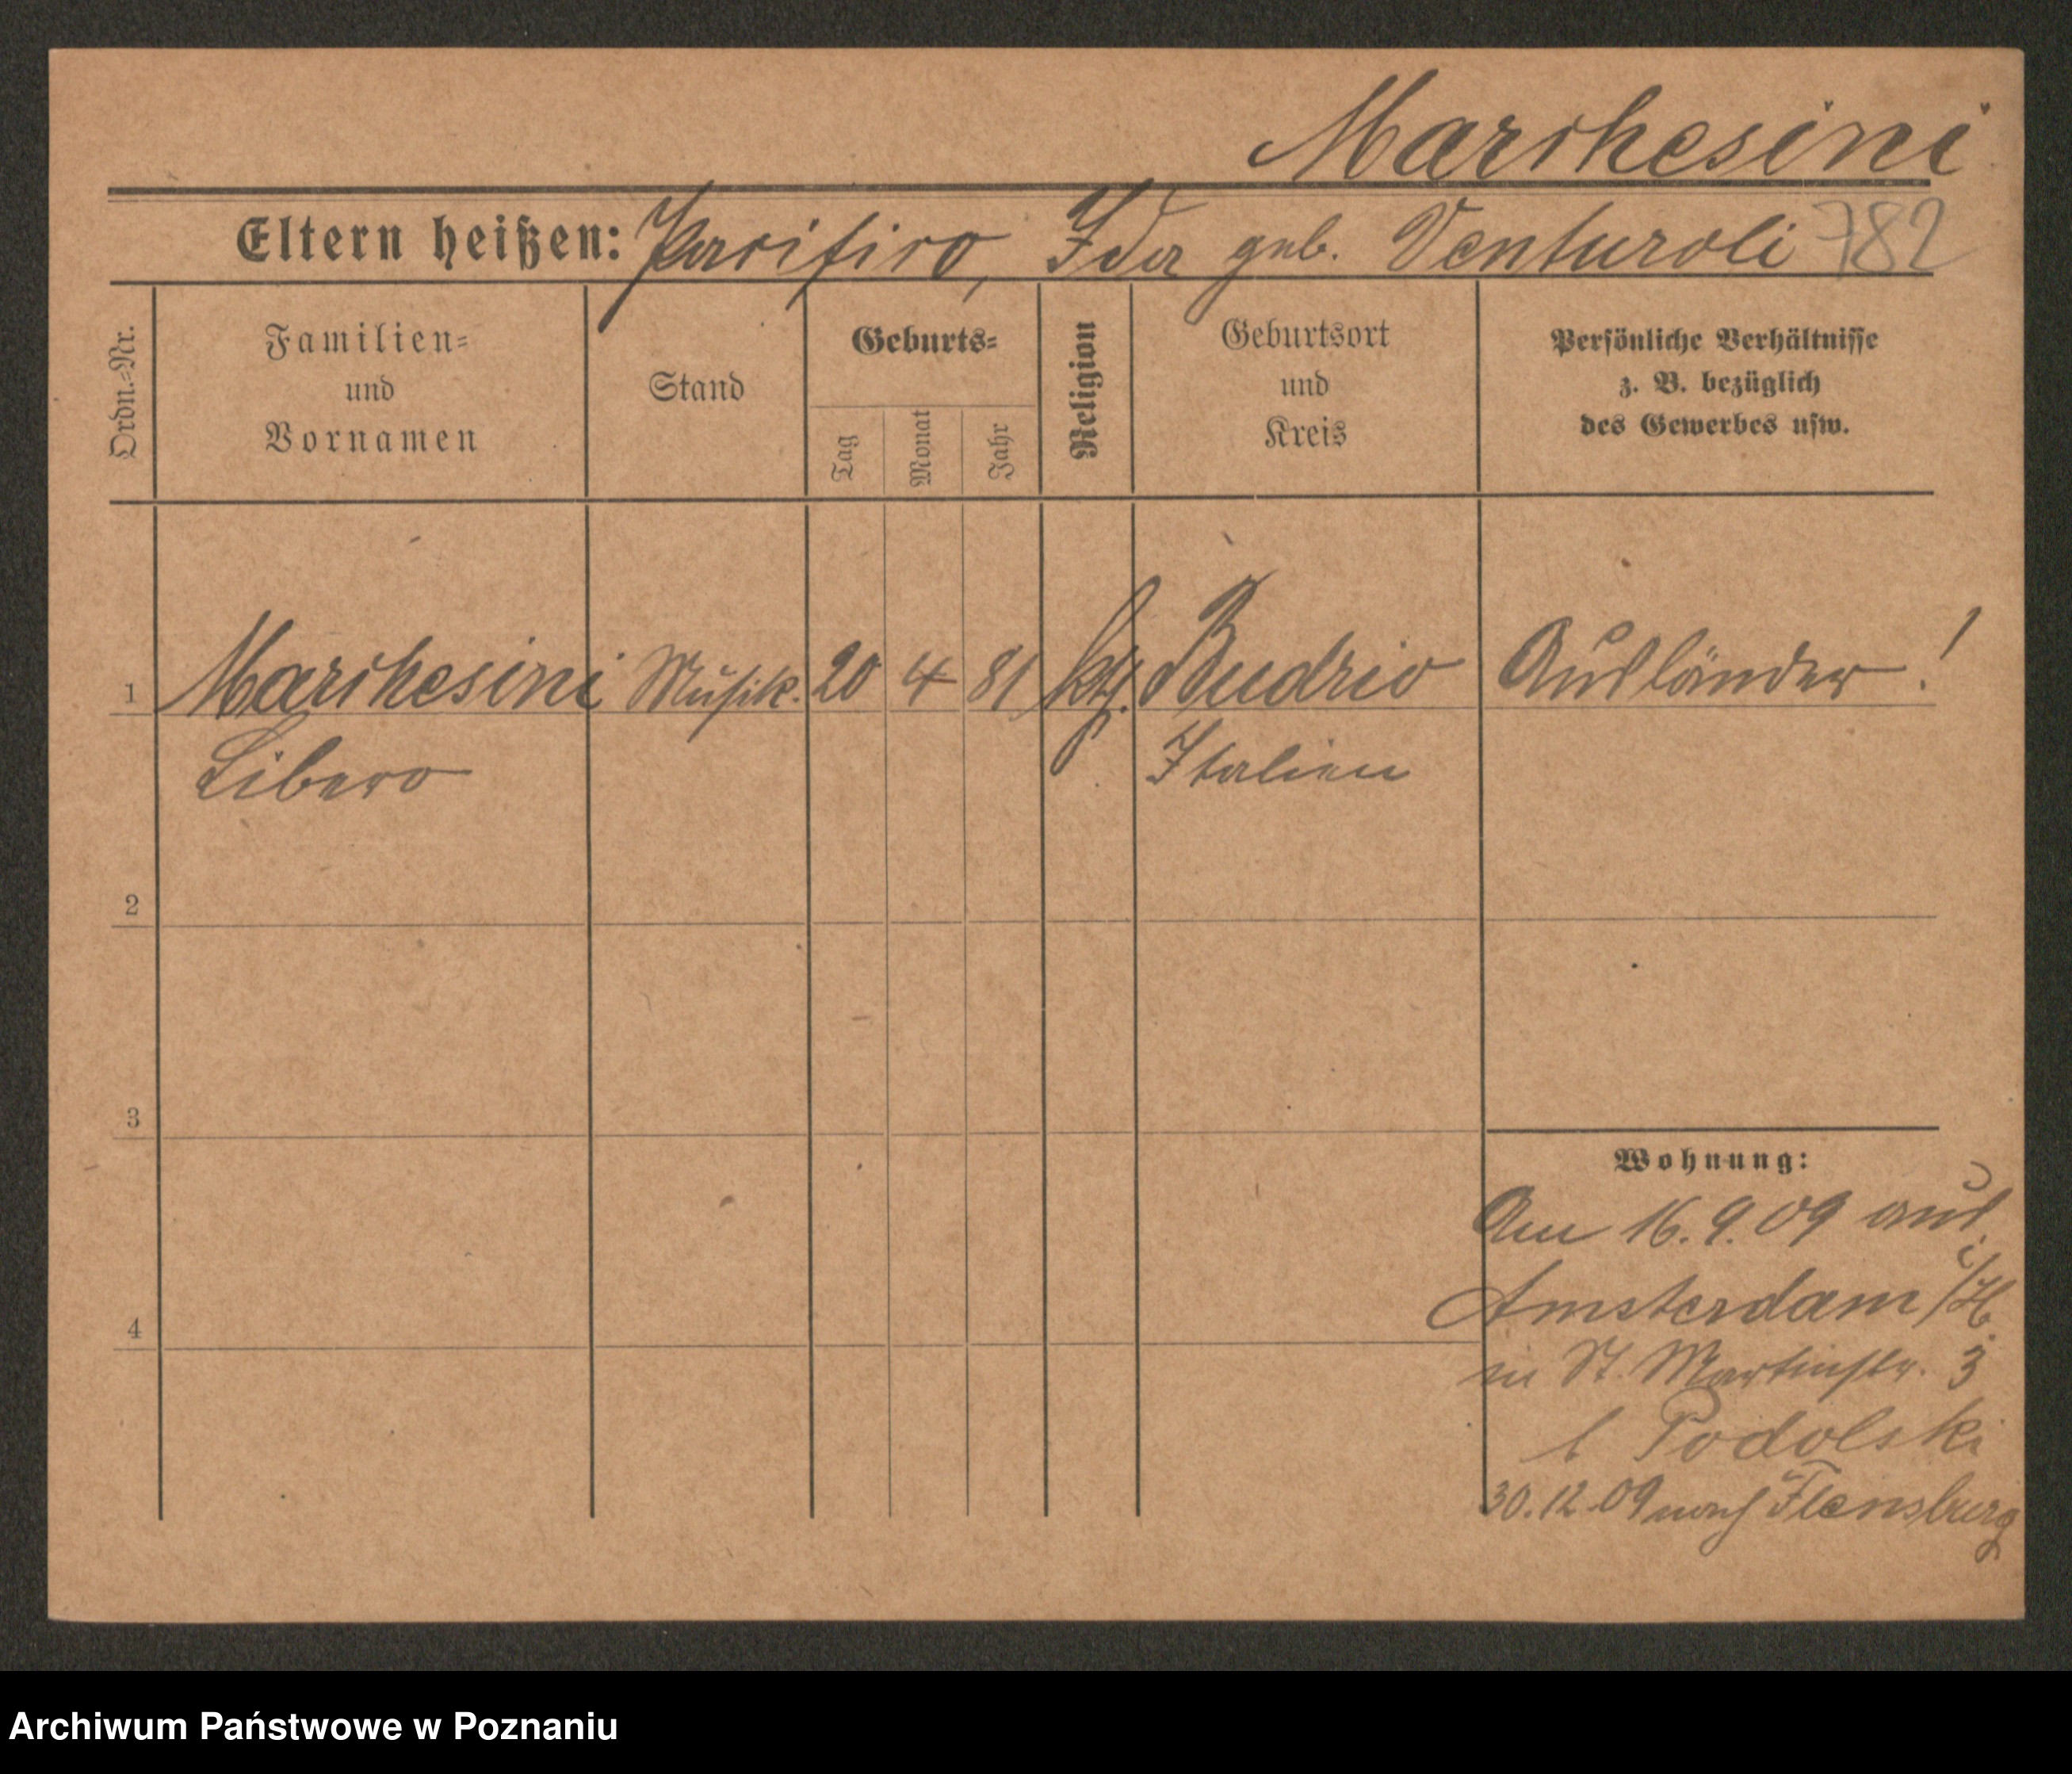 Marchesini
Eltern heißen: Pacifico, Ida geb. Venturoli 782
Ordn.-Nr.
Familien-
und
Vornamen
Stand
Geburts-
Tag
Monat
Jahr
Religion
Geburtsort
und
Kreis
Persönliche Verhältnisse
z. B. bezüglich
des Gewerbes usw.
1 Marchesini Musik. 20 4 81 kth. Budrio Ausländer!
Libero Italien
2
3
4
Wohnung:
Am 16.9.09 aus
Amsterdam i/H.
in St. Martinstr. 3
b Podolski
30.12.09 nach Flensburg
Archiwum Państwowe w Poznaniu